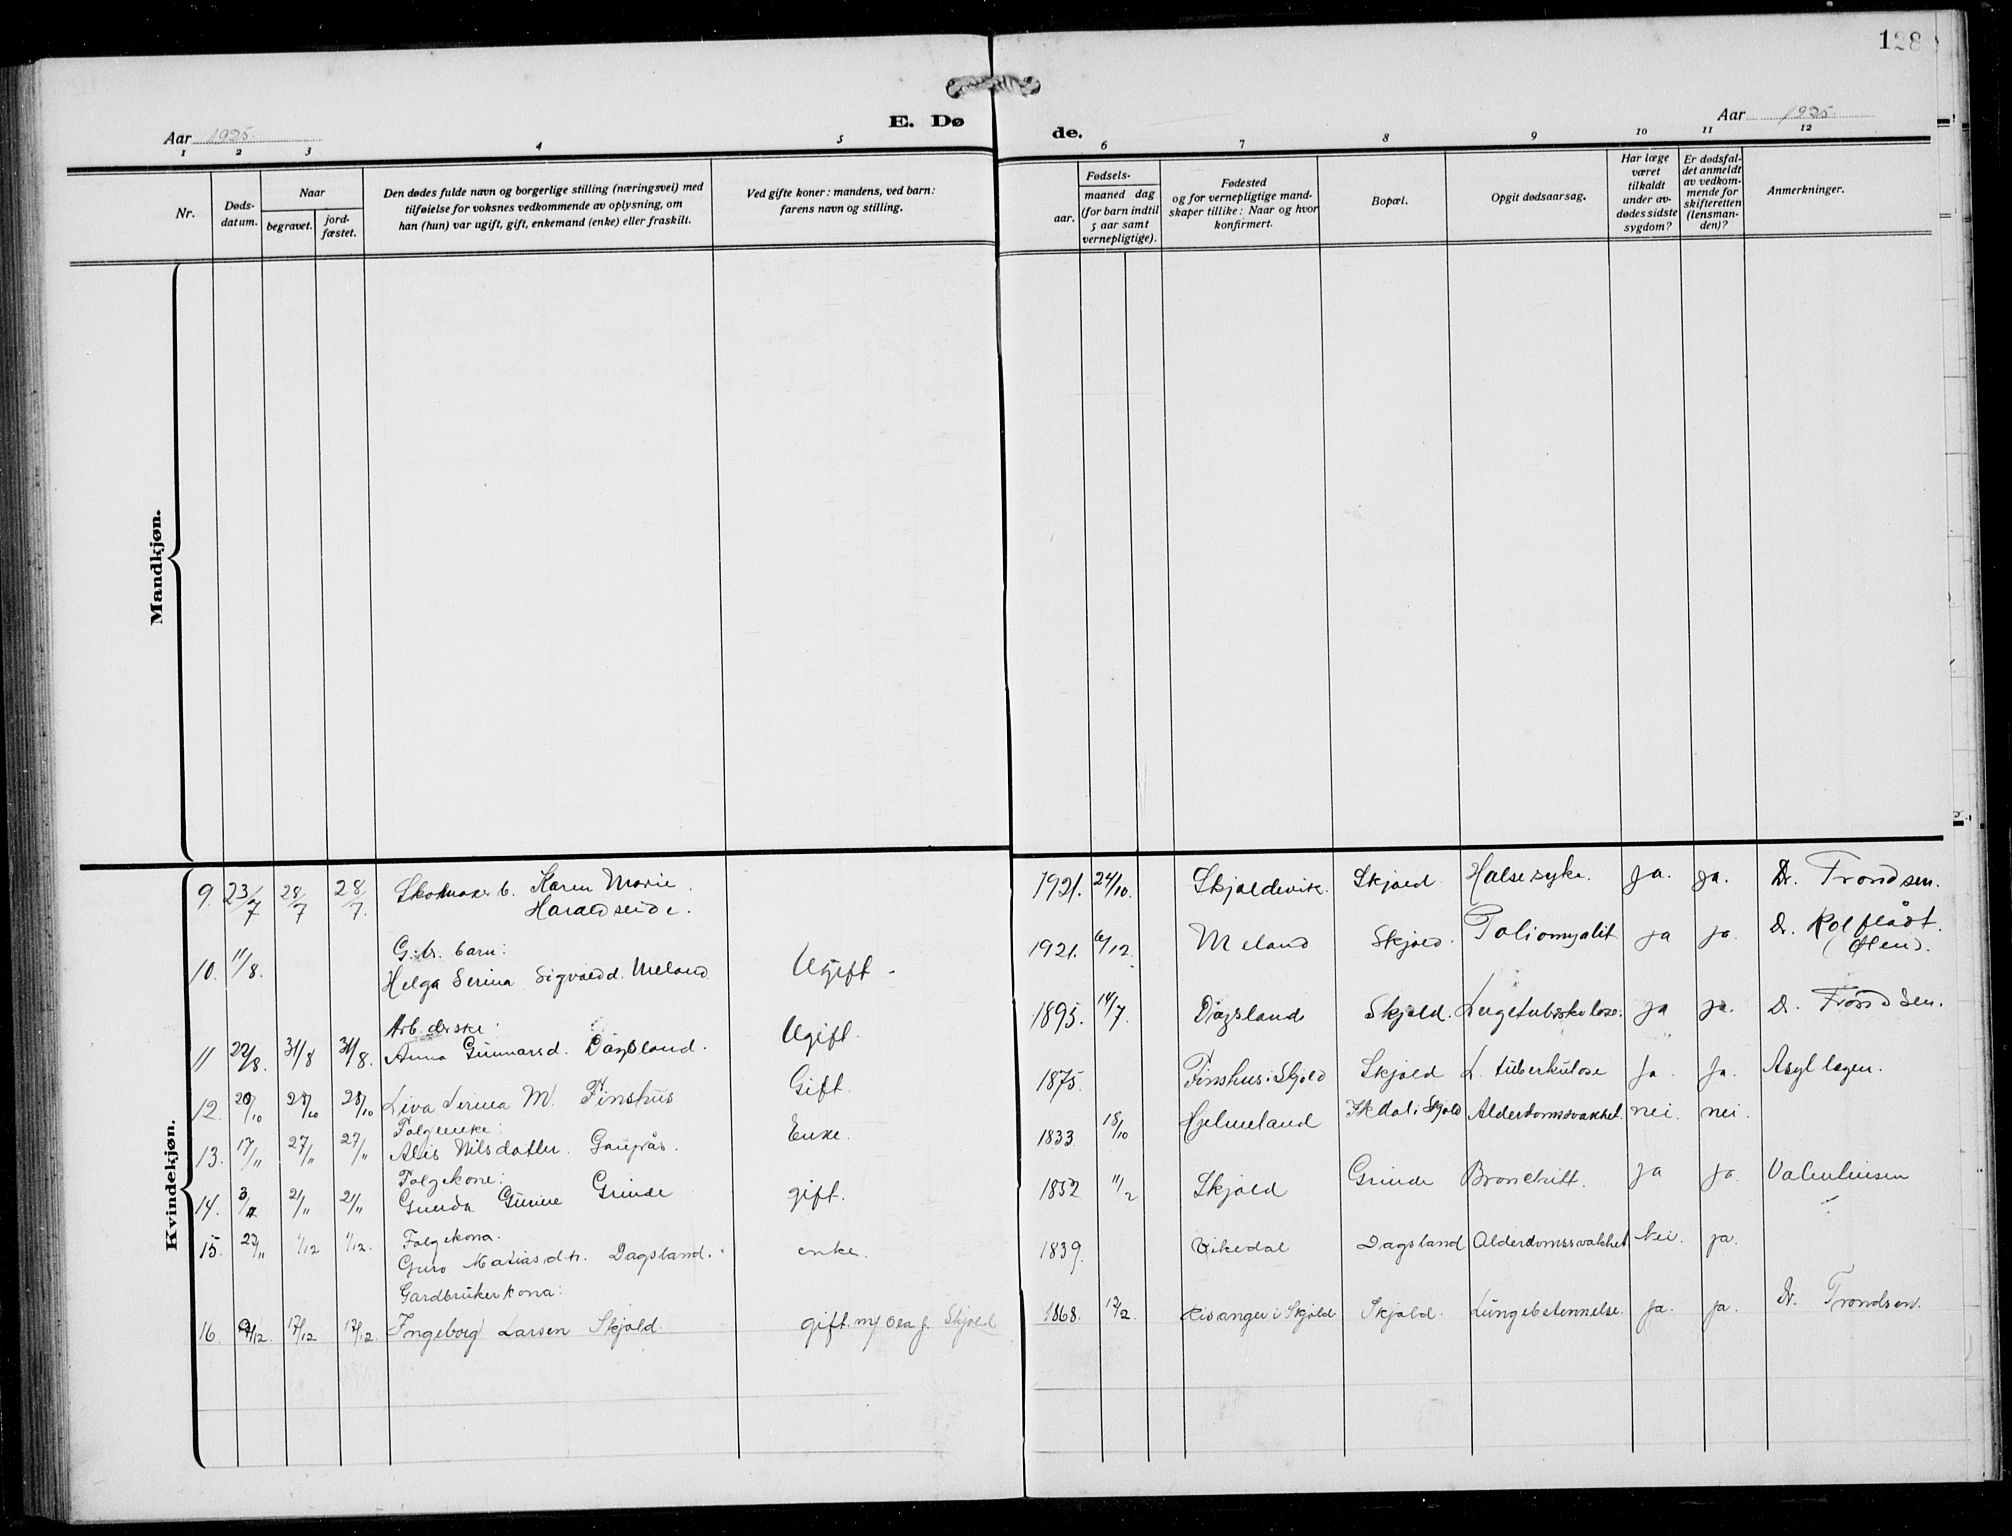 128
E. Dø
de.
Aar 1925.
Aar 1925.
1 2 3 4 5
6 7 8 9 10 11 12
Nr.
Døds-
datum.
Naar
begravet.
jord-
fæstet.
Den dødes fulde navn og borgerlige stilling (næringsvei) med
tilføielse for voksnes vedkommende av oplysning, om
han (hun) var ugift, gift, enkemand (enke) eller fraskilt.
Ved gifte koner: mandens, ved barn:
farens navn og stilling.
Fødsels-
aar.
maaned dag
(for barn indtil
5 aar samt
vernepligtige).
Fødested
og for vernepligtige mand-
skaper tillike: Naar og hvor
konfirmert.
Bopæl.
Opgit dødsaarsag.
Har læge
været
tilkaldt
under av-
dødes sidste
sygdom?
Er dødsfal-
det anmeldt
av vedkom-
mende for
skifteretten
(lensman-
den)?
Anmerkninger.
Mandkjøn.
Kvindekjøn.
9. 23/7 28/7 28/7. Skomaker b. Karen Marie
Haraldseide.
1921. 24/10. Skjoldevik. Skjold Halsesyke. ja. ja. Dr. Trondsen.
10. 11/8. G.br. barn:
Helga Serina Sigvaldd. Meland Ugift.
1921. 6/12. Meland Skjold. Poliomyalit ja ja. Dr. Rolfladt.
(Ølen).
11 22/8. 31/8 31/8. Arb.derske:
Anna Gunnarsd. Dagsland. Ugift.
1895. 14/7. Dagsland Skjold. Lugetubskolose. ja ja. Dr. Trondsen.
12. 20/10 28/10 28/10 Liva Serina M. Finshus Gift.
1875. Finshus i Skjold Skjold L. tuberkulose Ja. Ja. Asyl lægen.
13. 17/11 27/11 27/11 Folgeenke:
Alis Nilsdatter. Gauprås. Enke.
1833. 18/10 Hjelmeland Skdal i Skjold Alderdomssvakhet. nei. nei.
14. 3/11 21/11 21/11 Folgekone:
Gunda Gurine Grinde gift.
1852 11/2 Skjold Grinde Bronchitt. ja ja. Valentinsen
15. 23/11 1/12 1/12. Folgekona.
Guro Matiasdtr. Dagsland. enke.
1839. Vikedal Dagsland Alderdomssvakhet Nei. ja.
16. 9/12 17/12 17/12. Gardbrukerkona:
Ingeborg Larsen Skjold. gift m/ Ola J. Skjold
1868. 12/2. Eisanger i Skjold Skjold. Lungebetennelse. Ja. ja. Dr. Trondsen.